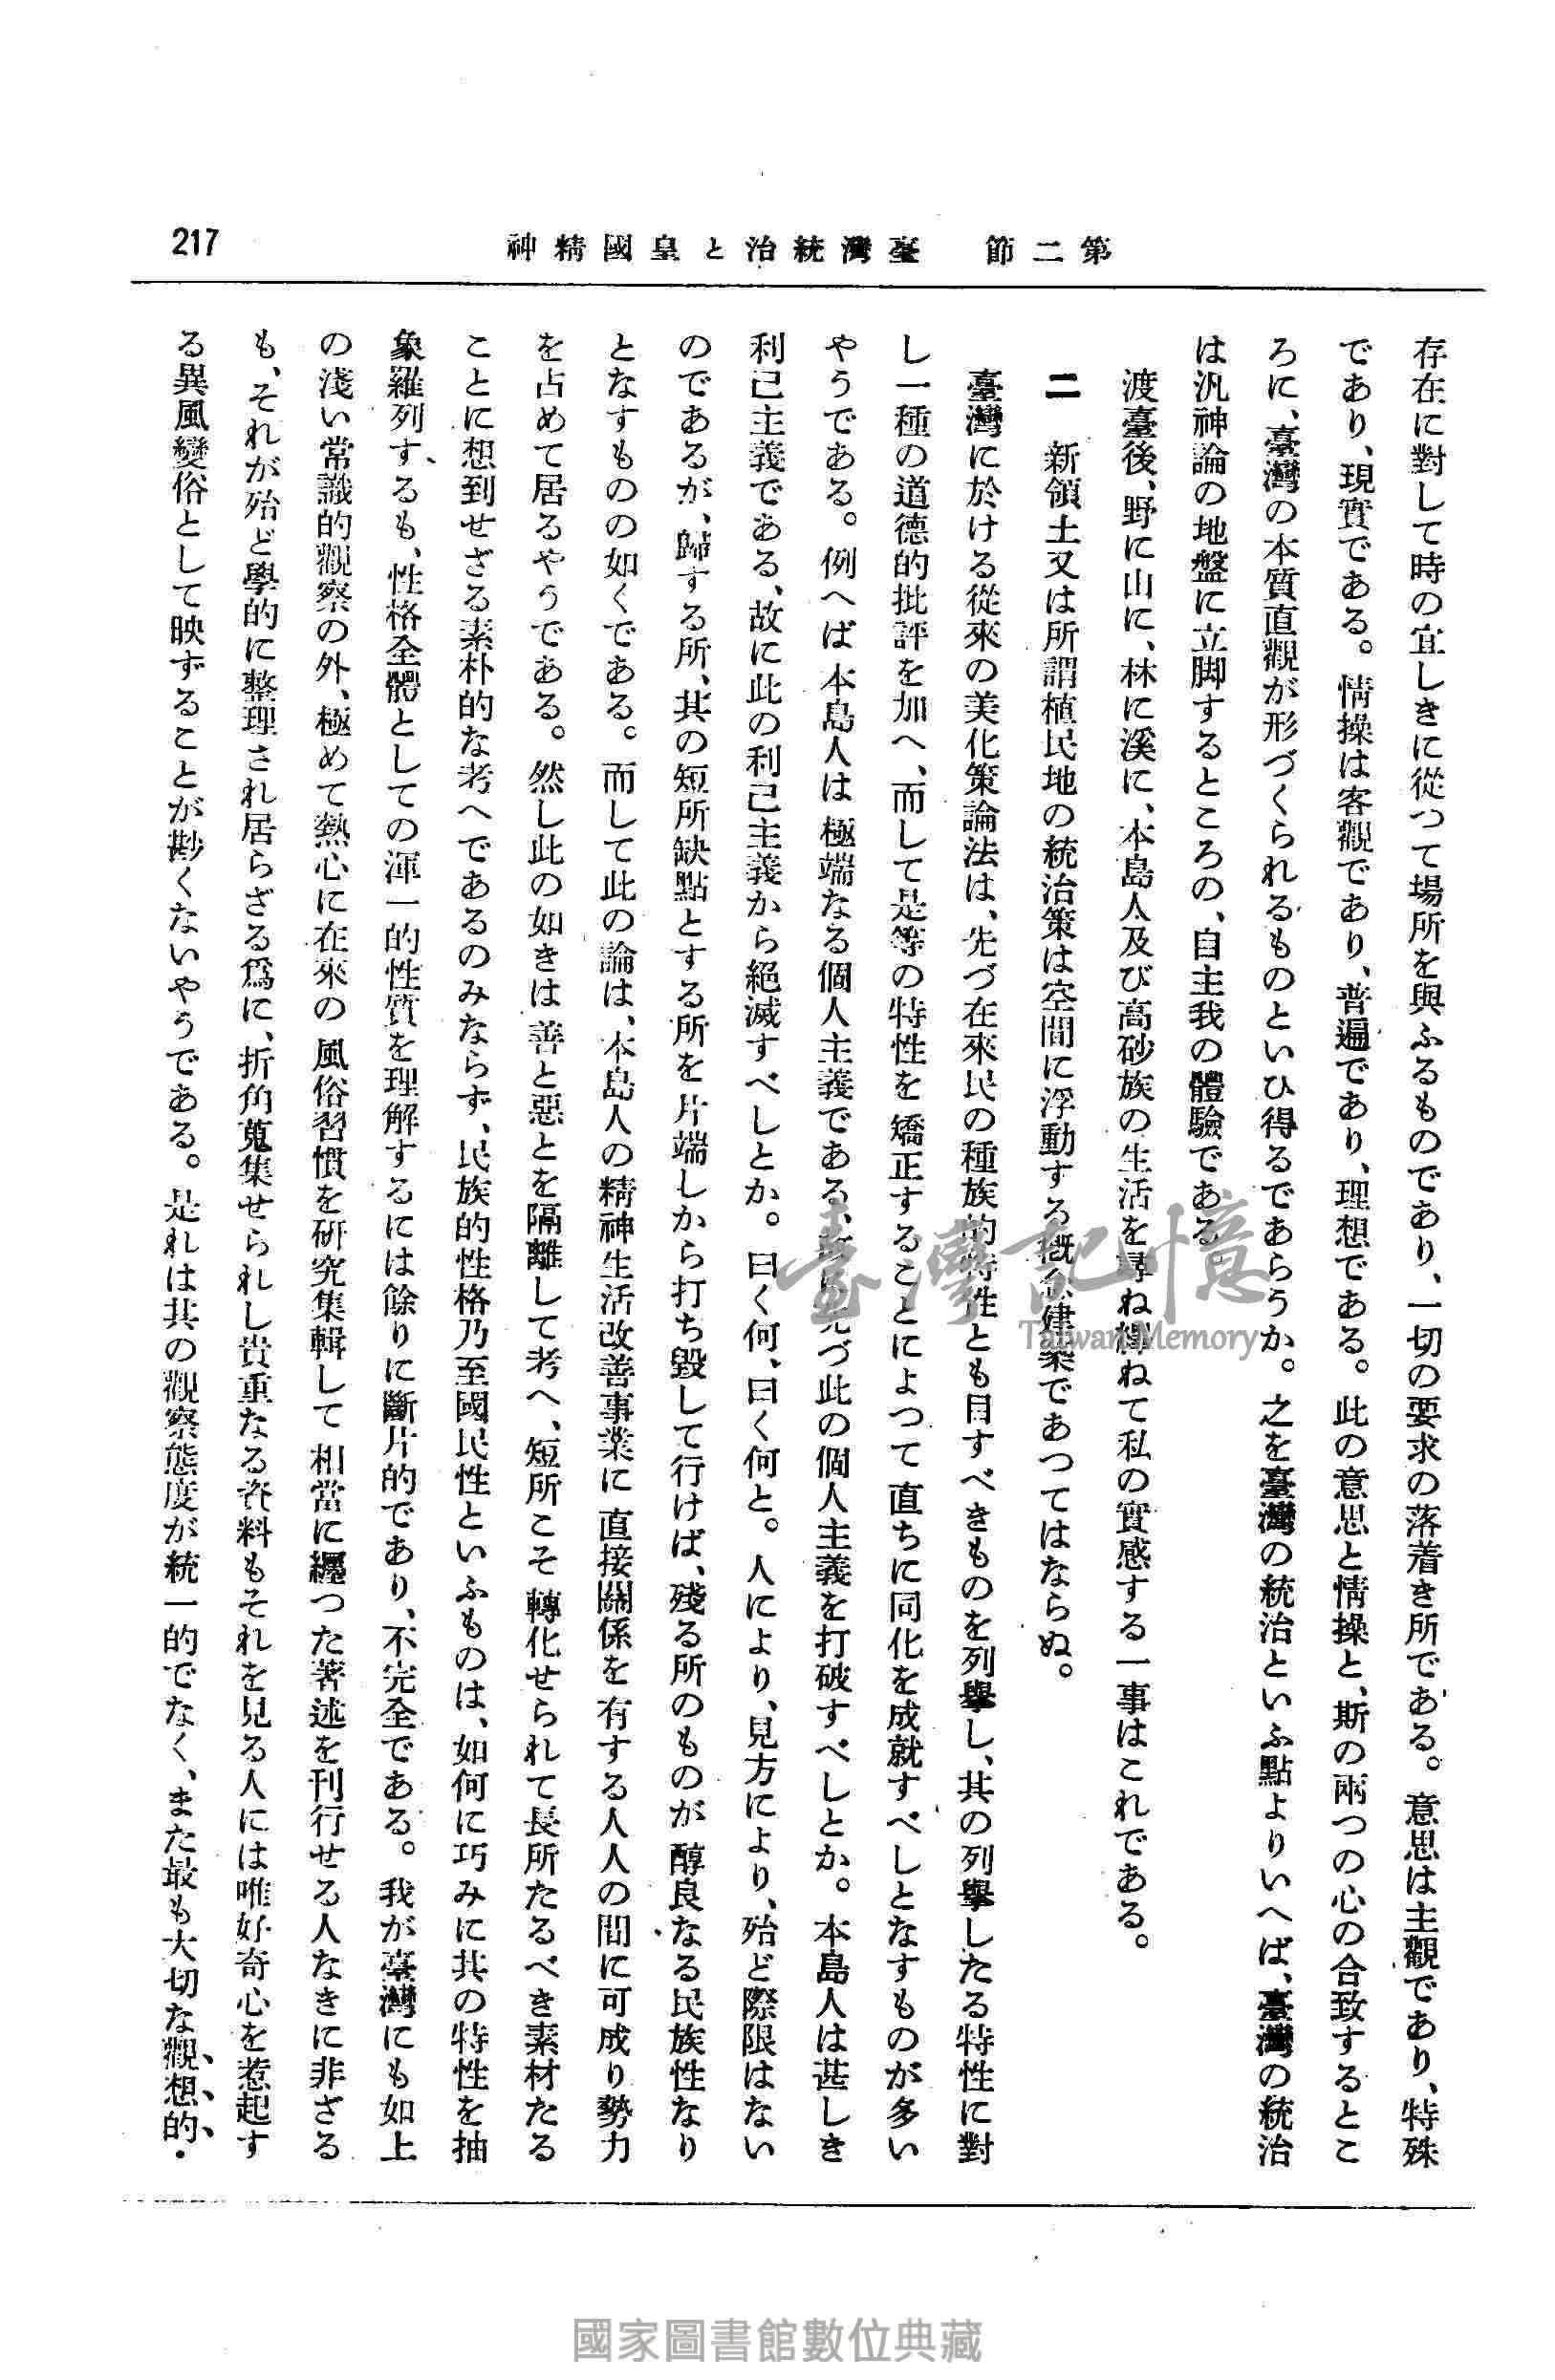 第二節　臺灣統治と皇國精神
217
存在に對して時の宜しきに從つて場所を與ふるものであり、一切の要求の落着き所である。意思は主觀であり、特殊
であり、現實である。情操は客觀であり、普遍であり、理想である。此の意思と情操と、斯の兩つの心の合致するとこ
ろに、臺灣の本質直觀が形づくられるものといひ得るであらうか。之を臺灣の統治といふ點よりいへば、臺灣の統治
は汎神論の地盤に立脚するところの、自主我の體驗である。
渡臺後、野に山に、林に溪に、本島人及び高砂族の生活を尋ね尋ねて私の實感する一事はこれである。
二　新領土又は所謂植民地の統治策は空間に浮動する概念建築であつてはならぬ。
臺灣に於ける從來の美化策論法は、先づ在來民の種族的特性とも目すべきものを列擧し、其の列擧したる特性に對
し一種の道德的批評を加へ、而して是等の特性を矯正することによつて直ちに同化を成就すべしとなすものが多い
やうである。例へば本島人は極端なる個人主義である、故に先づ此の個人主義を打破すべしとか。本島人は甚しき
利己主義である、故に此の利己主義から絕滅すべしとか。曰く何、曰く何と。人により、見方により、殆ど際限はない
のであるが、歸する所、其の短所缺點とする所を片端しから打ち毀して行けば、殘る所のものが醇良なる民族性なり
となすものの如くである。而して此の論は、本島人の精神生活改善事業に直接關係を有する人人の間に可成り勢力
を占めて居るやうである。然し此の如きは善と惡とを隔離して考へ、短所こそ轉化せられて長所たるべき素材たる
ことに想到せざる素朴的な考へであるのみならず、民族的性格乃至國民性といふものは、如何に巧みに其の特性を抽
象羅列するも、性格全體としての渾一的性質を理解するには餘りに斷片的であり、不完全である。我が臺灣にも如上
の淺い常識的觀察の外、極めて熱心に在來の風俗習慣を硏究集輯して相當に纒つた著述を刊行せる人なきに非ざる
も、それが殆ど學的に整理され居らざる爲に、折角蒐集せられし貴重なる資料もそれを見る人には唯好奇心を惹起す
る異風變俗として映ずることが尠くないやうである。是れは其の觀察態度が統一的でなく、また最も大切な觀想的・
臺灣記憶
Taiwan Memory
國家圖書館數位典藏